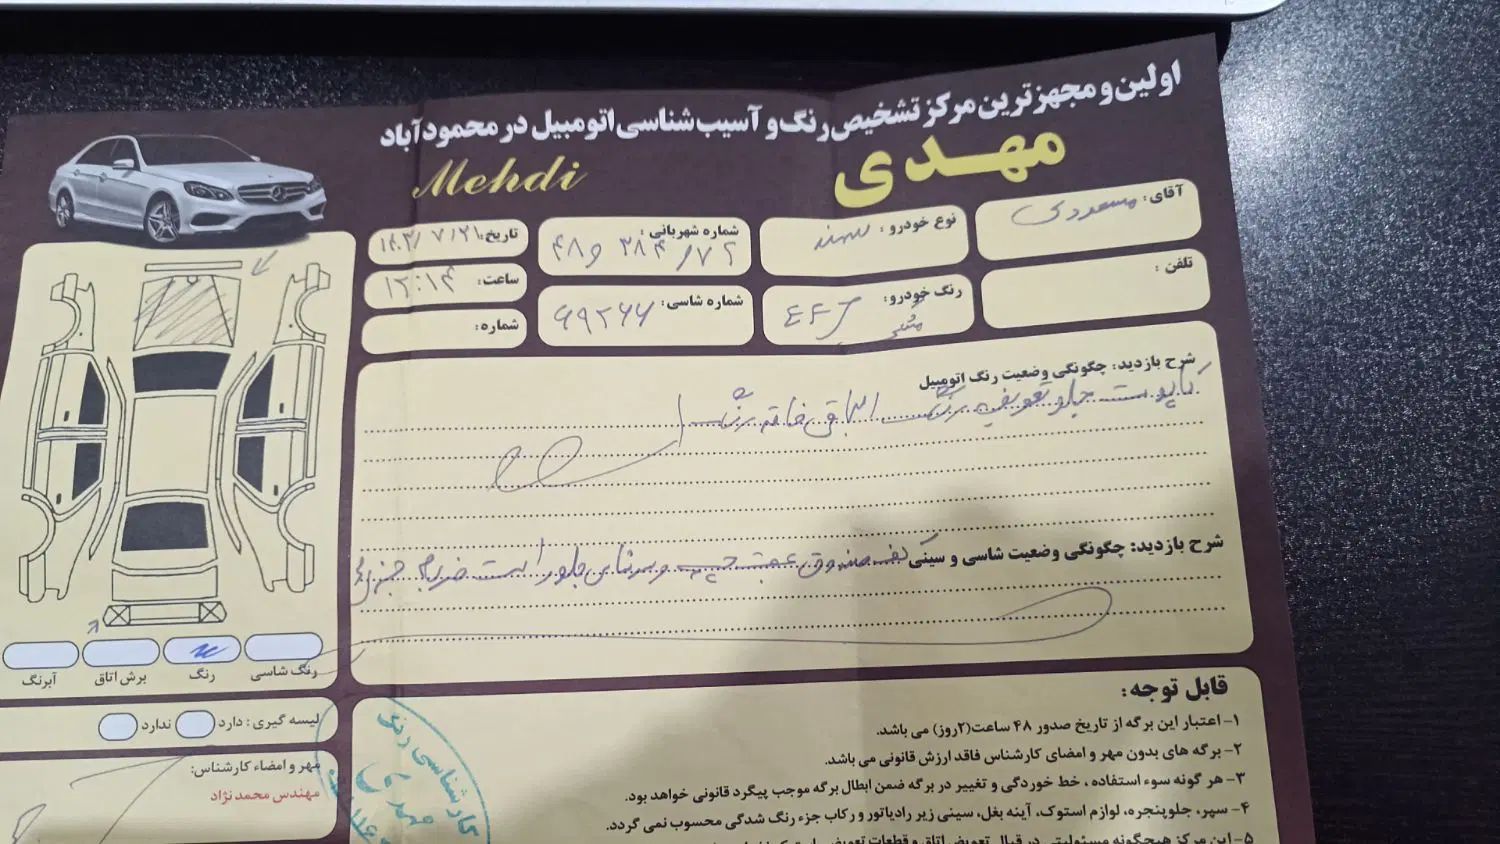 اولین و مجهزترین مرکز تشخیص رنگ و آسیب شناسی اتومبیل در محمودآباد
مهدی
Mehdi
آقای: مسعودی
نوع خودرو: سمند
شماره شهربانی: ۷۲ / ۳۸۴ و ۴۸
تاریخ: ۱۴۰۳/۷/۲۱
تلفن:
رنگ خودرو: مشکی
شماره شاسی:
ساعت: ۱۲:۱۴
شماره:
شرح بازدید: چگونگی وضعیت رنگ اتومبیل
کاپوت جلو تعویض رنگ الباقی فاقد رنگ است
شرح بازدید: چگونگی وضعیت شاسی و سینی کف صندوق عقب چپ و سرشاسی جلو راست ضربه جزئی
رنگ شاسی
رنگ
برش اتاق
آبرنگ
لیسه گیری: دارد ندارد
مهر و امضاء کارشناس:
مهندس محمدنژاد
کارشناسی رنگ
مهدی
قابل توجه:
۱- اعتبار این برگه از تاریخ صدور ۴۸ ساعت(۲روز) می باشد.
۲- برگه های بدون مهر و امضای کارشناس فاقد ارزش قانونی می باشد.
۳- هر گونه سوء استفاده ، خط خوردگی و تغییر در برگه ضمن ابطال برگه موجب پیگرد قانونی خواهد بود.
۴- سپر، جلوپنجره، لوازم استوک، آینه بغل، سینی زیر رادیاتور و رکاب جزء رنگ شدگی محسوب نمی گردد.
۵- این مرکز هیچگونه مسئولیتی در قبال تعویض اتاق و قطعات تعویض